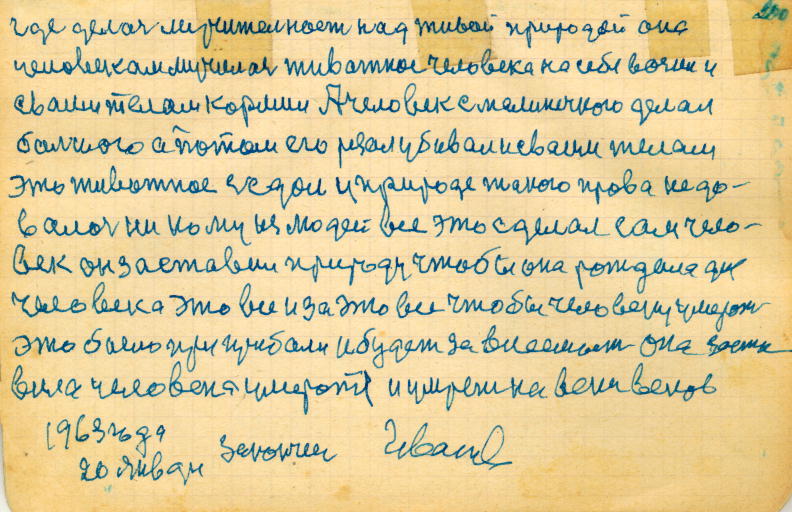 200
где делая мучителност над живой природой она
человекам мучилас животное человека на себе вози и
сваим телам корми А человек с малинечкого делал
балшого а потом его резал убивал и сваим телам
это животное sедал и природе такого права недо-
валас ни кому из людей все это сделал сам чело-
век он заставил природу чтобы она рождала для
человека это все и за это все чтобы человеку умерат
это было при и будет зависимост она заста
вила человека умерат и умрет на веки веков
1963 года
20 Январ закончил Иванов